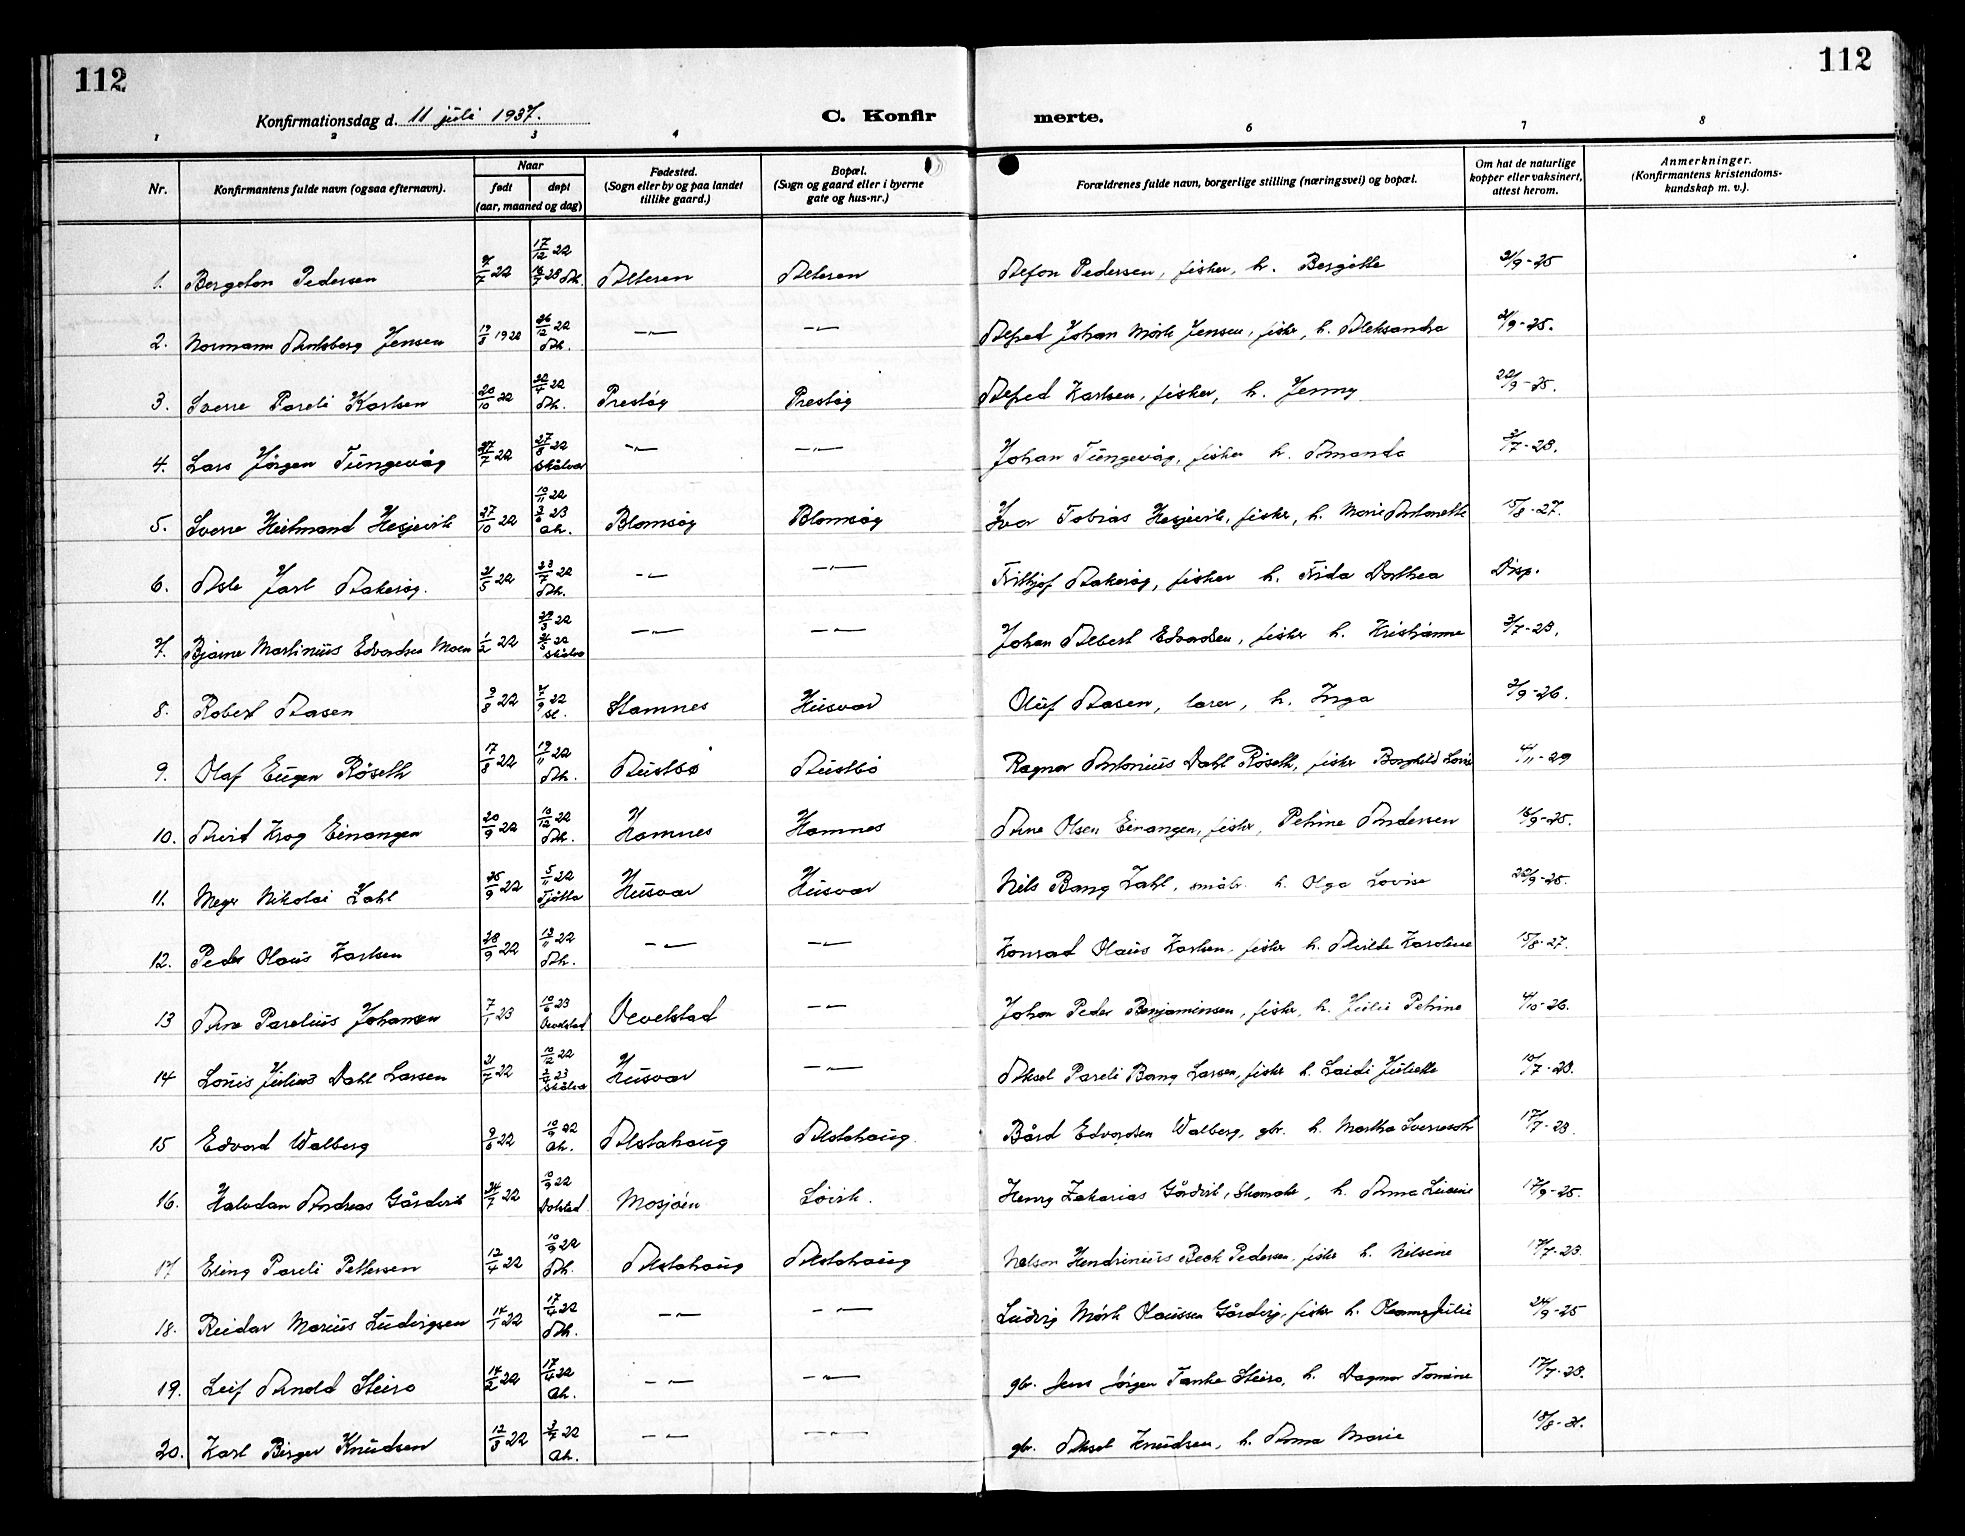 112
112
Konfirmationsdag d. 11 juli 1937.
C. Konfir
merte.
1 2 3 4 6 7 8
Nr.
Konfirmantens fulde navn (ogsaa efternavn).
Naar
født
døpt
(aar, maaned og dag)
Fødested.
(Sogn eller by og paa landet
tillike gaard.)
Bopæl.
(Sogn og gaard eller i byerne
gate og hus-nr.)
Forældrenes fulde navn, borgerlige stilling (næringsvei) og bopæl.
Om hat de naturlige
kopper eller vaksinert,
attest herom.
Anmerkninger.
(Konfirmantens kristendoms-
kundskap m. v.).
1. Bergeton Pedersen 22 17/12 22 Alteren Alteren Pedersen, fisker, h. Bergitte 21/9-25
2. Normann Jensen 19/8 1922 26/12 22 Ah. —"— —"— Alfred Johan Mørk Jensen, fisker, h. Aleksandra 21/9-25.
3. Sverre Pareli Karlsen 20/10 22 22 Ah. Prestøy Prestøy Alfred Karlsen, fisker, h. Jenny 22/9-25.
4. Lars Jørgen Tungevåg 27/7 22 27/8 22 Skålvær —"— —"— Johan Tungevåg, fisker h. Amanda 3/7-23.
5. Sverre Heitmand Hesjevik 27/10 22 10/11 22 23 Ah. Blomsøy Blomsøy Ivar Tobias Hesjevik, fisker, h. Marie Antonette 15/8-27.
6. Asle Jarl Aakerøy. 21/5 22 23/7 22 Ah. —"— —"— Fritjof Aakerøy, fisker h. Frida Dorthea Disp.
7. Bjarne Martinius Edvardsen Moen 1/2 22 22 22 Skålvær —"— —"— Johan Albert Edvardsen, fisker h. Kristianne 3/7-23.
8. Robert Aasen 9/8 22 22 Stamnes Husvær Oluf Aasen, lærer, h. Inga 2/9-26.
9. Olaf Eugen Røseth 17/8 22 19/11 22 Ah. Austbø Austbø Ragnar Antonius Dahl Røseth, fisker Borghild 4/11-29
10. Arvid Krog Einangen 20/9 22 10/12 22 Ah. Hamnes Hamnes Arne Olsen Einangen, fisker, Petrine Andersen 16/9-25.
11. Meyer Nikolai Zahl 25/9 22 5/11 22 Tjøtta Husvær Husvær Nils Bang Zahl, småbr. h. Olga Lovise 22/9-25.
12. Peder Olaus Karlsen 28/9 22 19/11 22 Ah. —"— —"— Konrad Olaus Karlsen, fisker h. Karoline 15/8-27.
13 Arne Parelius Johansen 7/1 23 10/6 23 Vevelstad Vevelstad —"— Johan Peder Benjaminsen, fisker, h. Julie Petrine 4/10-26.
14 Louis Julius Dahl Larsen 21/7 22 10/12 22 23 Skålvær Husvær —"— Aksel Pareli Bang Larsen, fisker h. Laidi Juliette 10/7-23.
15 Edvard Walberg 9/6 22 10/9 22 Ah. Alstahaug Alstahaug Bård Edvardsen Walberg, gbr. h. Martha 17/7-23.
16. Halvdan Andreas Gårdvik 24/7 22 10/9 22 Dolstad Mosjøen Henry Zakarias Gårdvik, h. Anna 17/9-25.
17 Erling Pareli Pettersen 12/4 22 10/9 22 Ah. Alstahaug Alstahaug Nelson Hendrinius Beck Pedersen, fisker h. Nilsine 17/7-23.
18. Reidar Marius Ludvigsen 14/1 22 17/4 22 Ah. —"— —"— Ludvig Mørk Olaussen, fisker h. 24/9-25
19. Leif Arnold Steiro 14/2 22 17/4 22 Ah. —"— —"— gbr. Jens Jørgen Tanke Steiro, h. Dagmar Tomine 17/7-23.
20. Karl Birger Knudsen 12/3 22 22 Ah. —"— —"— gbr. Aksel Knudsen, h. Anna Marie